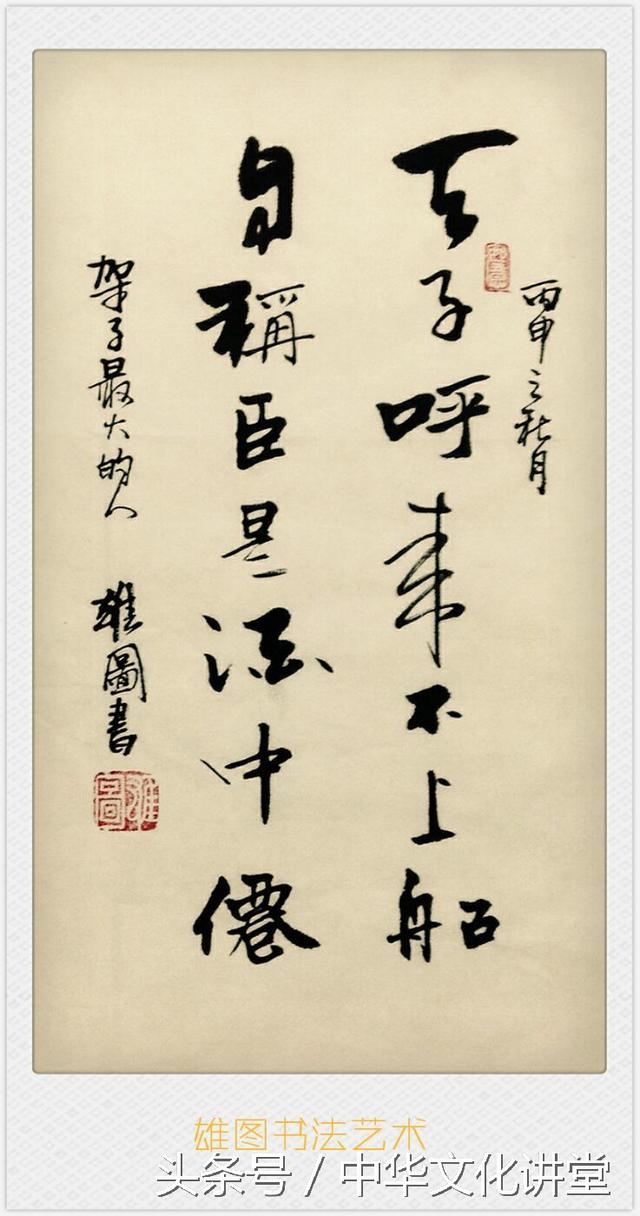 丙申之秋月
天子呼来不上船
自稱臣是酒中僊
架子最大的人 雄圖書
雄圖
雄图书法艺术
头条号 / 中华文化讲堂